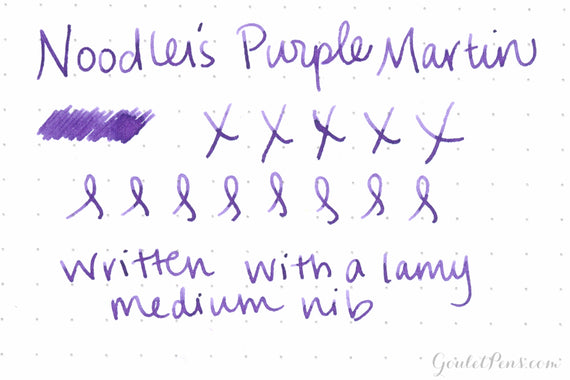 Noodler's Purple Martin
x x x x x
written with a lamy
medium nib
GouletPens.com